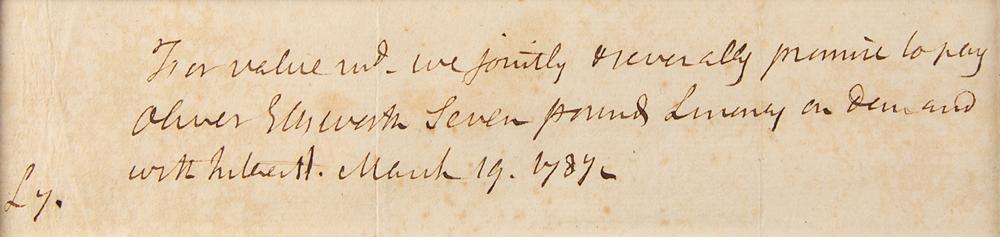 For value recd. we jointly & severally promise to pay
Oliver Ellsworth Seven pounds Lmoney on demand
with Interest. March 19. 1787.
L7.